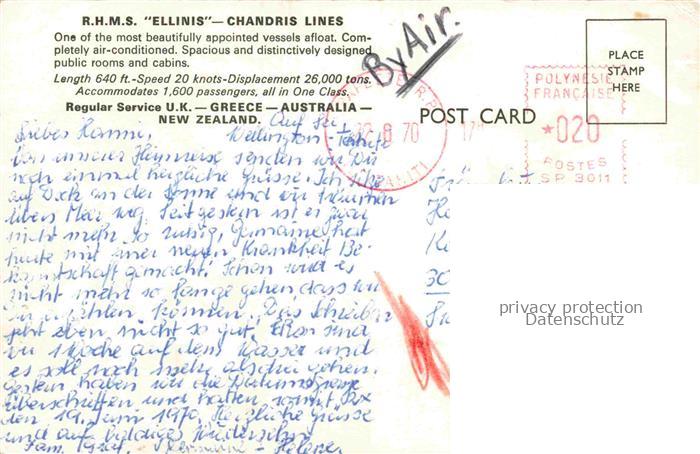 R.H.M.S. "ELLINIS"—CHANDRIS LINES
One of the most beautifully appointed vessels afloat. Com-
pletely air-conditioned. Spacious and distinctively designed
public rooms and cabins.
Length 640 ft.-Speed 20 knots-Displacement 26,000 tons.
Accommodates 1,600 passengers, all in One Class.
Regular Service U.K.—GREECE—AUSTRALIA—
NEW ZEALAND.
By Air.
POST CARD
PLACE
STAMP
HERE
POLYNESIE
FRANÇAISE
*020
POSTES
SP 3011
8 70
Auf See,
Wellington - Tahiti
Von unserer Heimreise senden wir Dir
noch einmal herzliche Grüsse. Ich sitze
auf Deck an der Sonne und wir träumen
übers Meer weg. Seit gestern ist es zwar
nicht mehr so ruhig, Germaine hat
heute mit einer neuen Krankheit Be-
kanntschaft gemacht. Schon wird es
nicht mehr so lange gehen, dass wir
Dir erzählen können. Das Schreiben
geht eben nicht so gut. Schon sind
wir 1 Woche auf dem Wasser und
es soll noch mehr als drei gehen.
Gestern haben wir die Datumsgrenze
überschritten und hatten somit 2x
den 19. Juni 1970. Herzliche Grüsse
und auf baldiges Wiedersehen
Fam. Hermann - Helene
privacy protection
Datenschutz